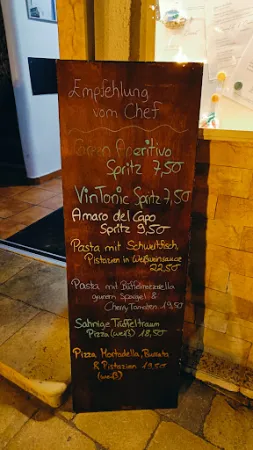 Empfehlung
vom Chef
Green Aperitivo
Spritz 7,50
VinTonic Spritz 7,50
Amaro del Capo
Spritz 9,50
Pasta mit Schwertfisch
Pistazien in Weißweinsauce
22,50
Pasta mit Büffelmozzarella
grünem Spargel &
Cherry Tomaten 19,50
Sahnige Trüffeltraum
Pizza (weiß) 18,50
Pizza Mortadella, Burrata
& Pistazien 19,50
(weiß)